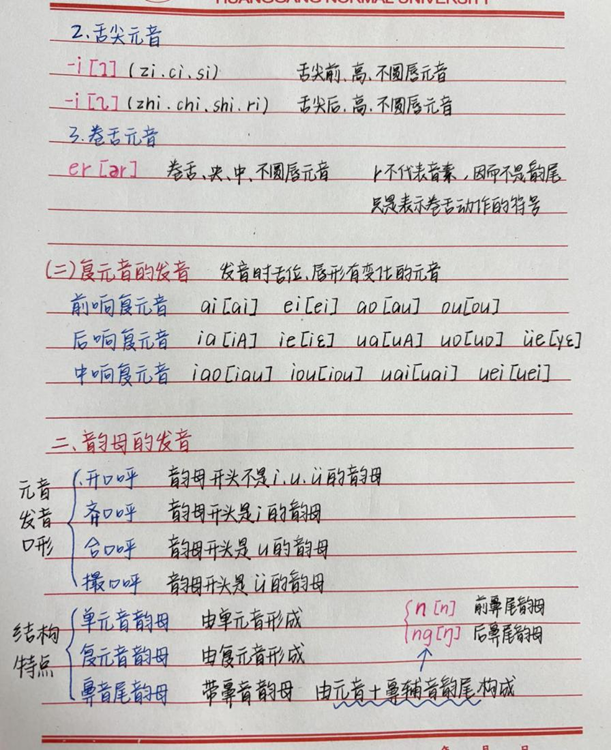 HUANGGANG NORMAL UNIVERSITY
2.舌尖元音
-i[ɿ](zi.ci.si) 舌尖前、高、不圆唇元音
-i[ʅ](zhi.chi.shi.ri) 舌尖后、高、不圆唇元音
3.卷舌元音
er[ər] 卷舌、央、中、不圆唇元音 r不代表音素,因而不是韵尾
只是表示卷舌动作的符号
(二)复元音的发音 发音时舌位、唇形有变化的元音
前响复元音 ai[ai] ei[ei] ao[au] ou[ou]
后响复元音 ia[iA] ie[iε] ua[uA] uo[uo] üe[yε]
中响复元音 iao[iau] iou[iou] uai[uai] uei[uei]
二、韵母的发音
元音发音口形
开口呼 韵母开头不是i.u.ü的韵母
齐口呼 韵母开头是i的韵母
合口呼 韵母开头是u的韵母
撮口呼 韵母开头是ü的韵母
结构特点
单元音韵母 由单元音形成
n[n] 前鼻尾韵母
ng[ŋ] 后鼻尾韵母
复元音韵母 由复元音形成
鼻音尾韵母 带鼻音韵母 由元音+鼻辅音韵尾构成